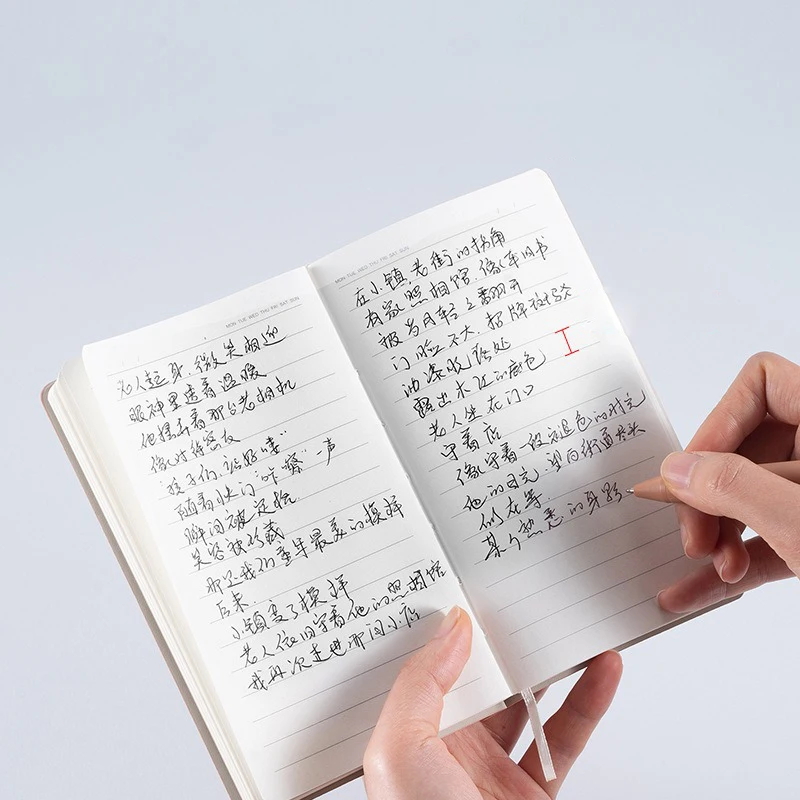 MON TUE WED THU FRI SAT SUN
老人起身,微笑相迎
眼神里透着温暖
他摆弄着那台老相机
像对待密友
"孩子们,站好喽"
随着快门"咔嚓"一声
瞬间被定格
笑容被珍藏
那是我们童年最美的模样
后来
小镇变了模样
老人依旧守着他的照相馆
我再次走进那间小店
MON TUE WED THU FRI SAT SUN
在小镇老街的拐角
有家照相馆,像本旧书
被岁月轻轻翻开
门脸不大,招牌
油漆脱落处
露出木头的底色
老人坐在门口
守着店
像守着一段褪色的时光
他的目光,望向街道尽头
似在等
某个熟悉的身影。